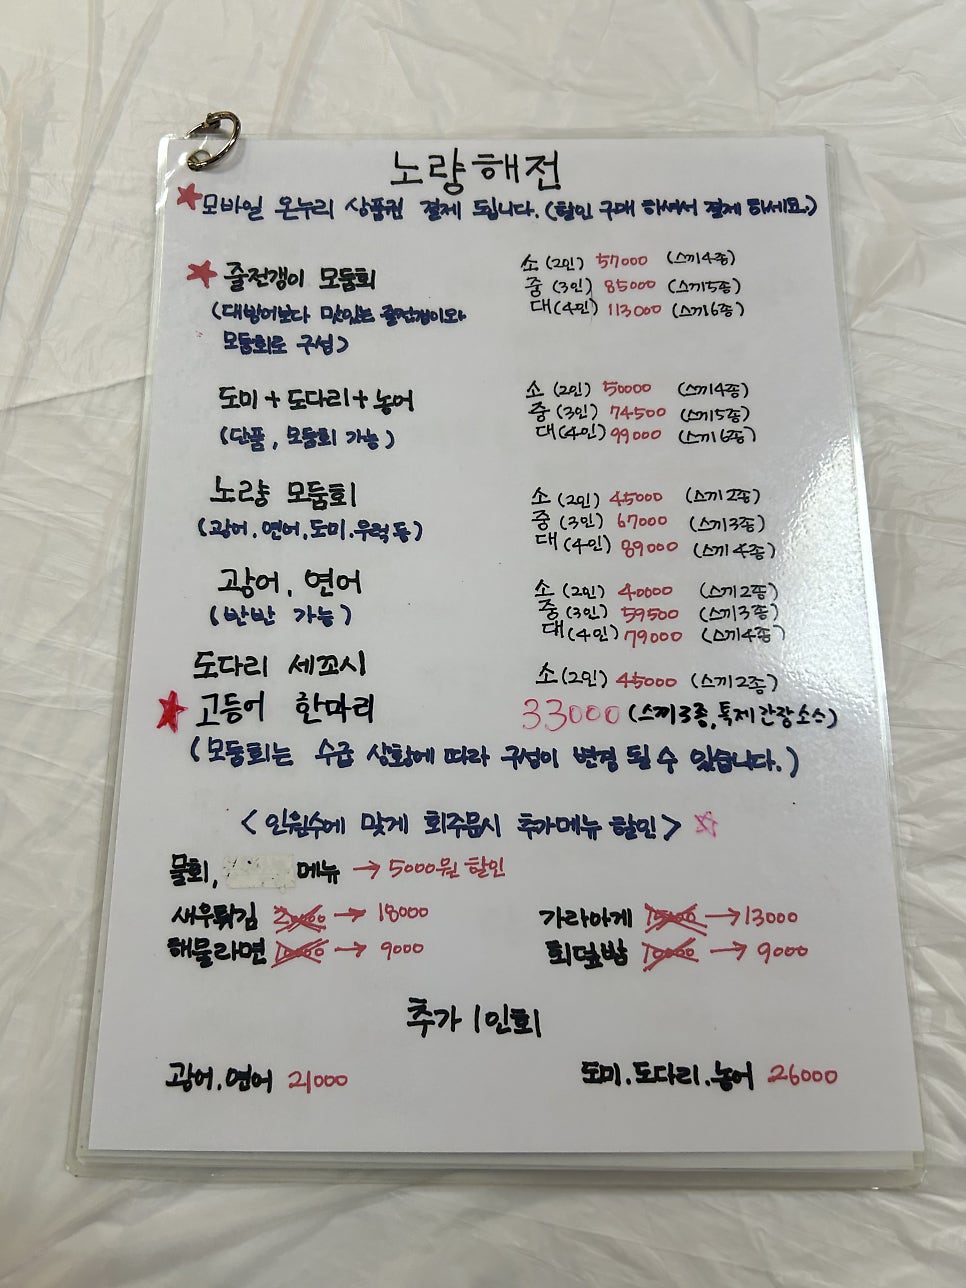 노량해전
★모바일 온누리 상품권 결제 됩니다.(할인 구매 하셔서 결제 하세요.)
★ 줄전갱이 모둠회 소(2인) 57000 (스끼4종)
중(3인) 85000 (스끼5종)
(대방어보다 맛있는 줄전갱이와 대(4인) 113000 (스끼6종)
모둠회로 구성)
도미+도다리+농어 소(2인) 50000 (스끼4종)
중(3인) 74500 (스끼5종)
(단품, 모둠회 가능) 대(4인) 99000 (스끼6종)
노량 모둠회 소(2인) 45000 (스끼2종)
(광어.연어.도미.우럭 등) 중(3인) 67000 (스끼3종)
대(4인) 89000 (스끼4종)
광어, 연어 소(2인) 40000 (스끼2종)
(반반 가능) 중(3인) 59500 (스끼3종)
대(4인) 79000 (스끼4종)
도다리 세꼬시 소(2인) 45000 (스끼2종)
★ 고등어 한마리 33000 (스끼3종,특제간장소스)
(모둠회는 수급 상황에 따라 구성이 변경 될 수 있습니다.)
<인원수에 맞게 회주문시 추가메뉴 할인> ☆
물회, 메뉴 → 5000원 할인
새우튀김 20000 → 18000 가라아게 15000 → 13000
해물라면 10000 → 9000 회덮밥 10000 → 9000
추가 1인회
광어.연어 21000 도미.도다리.농어 26000